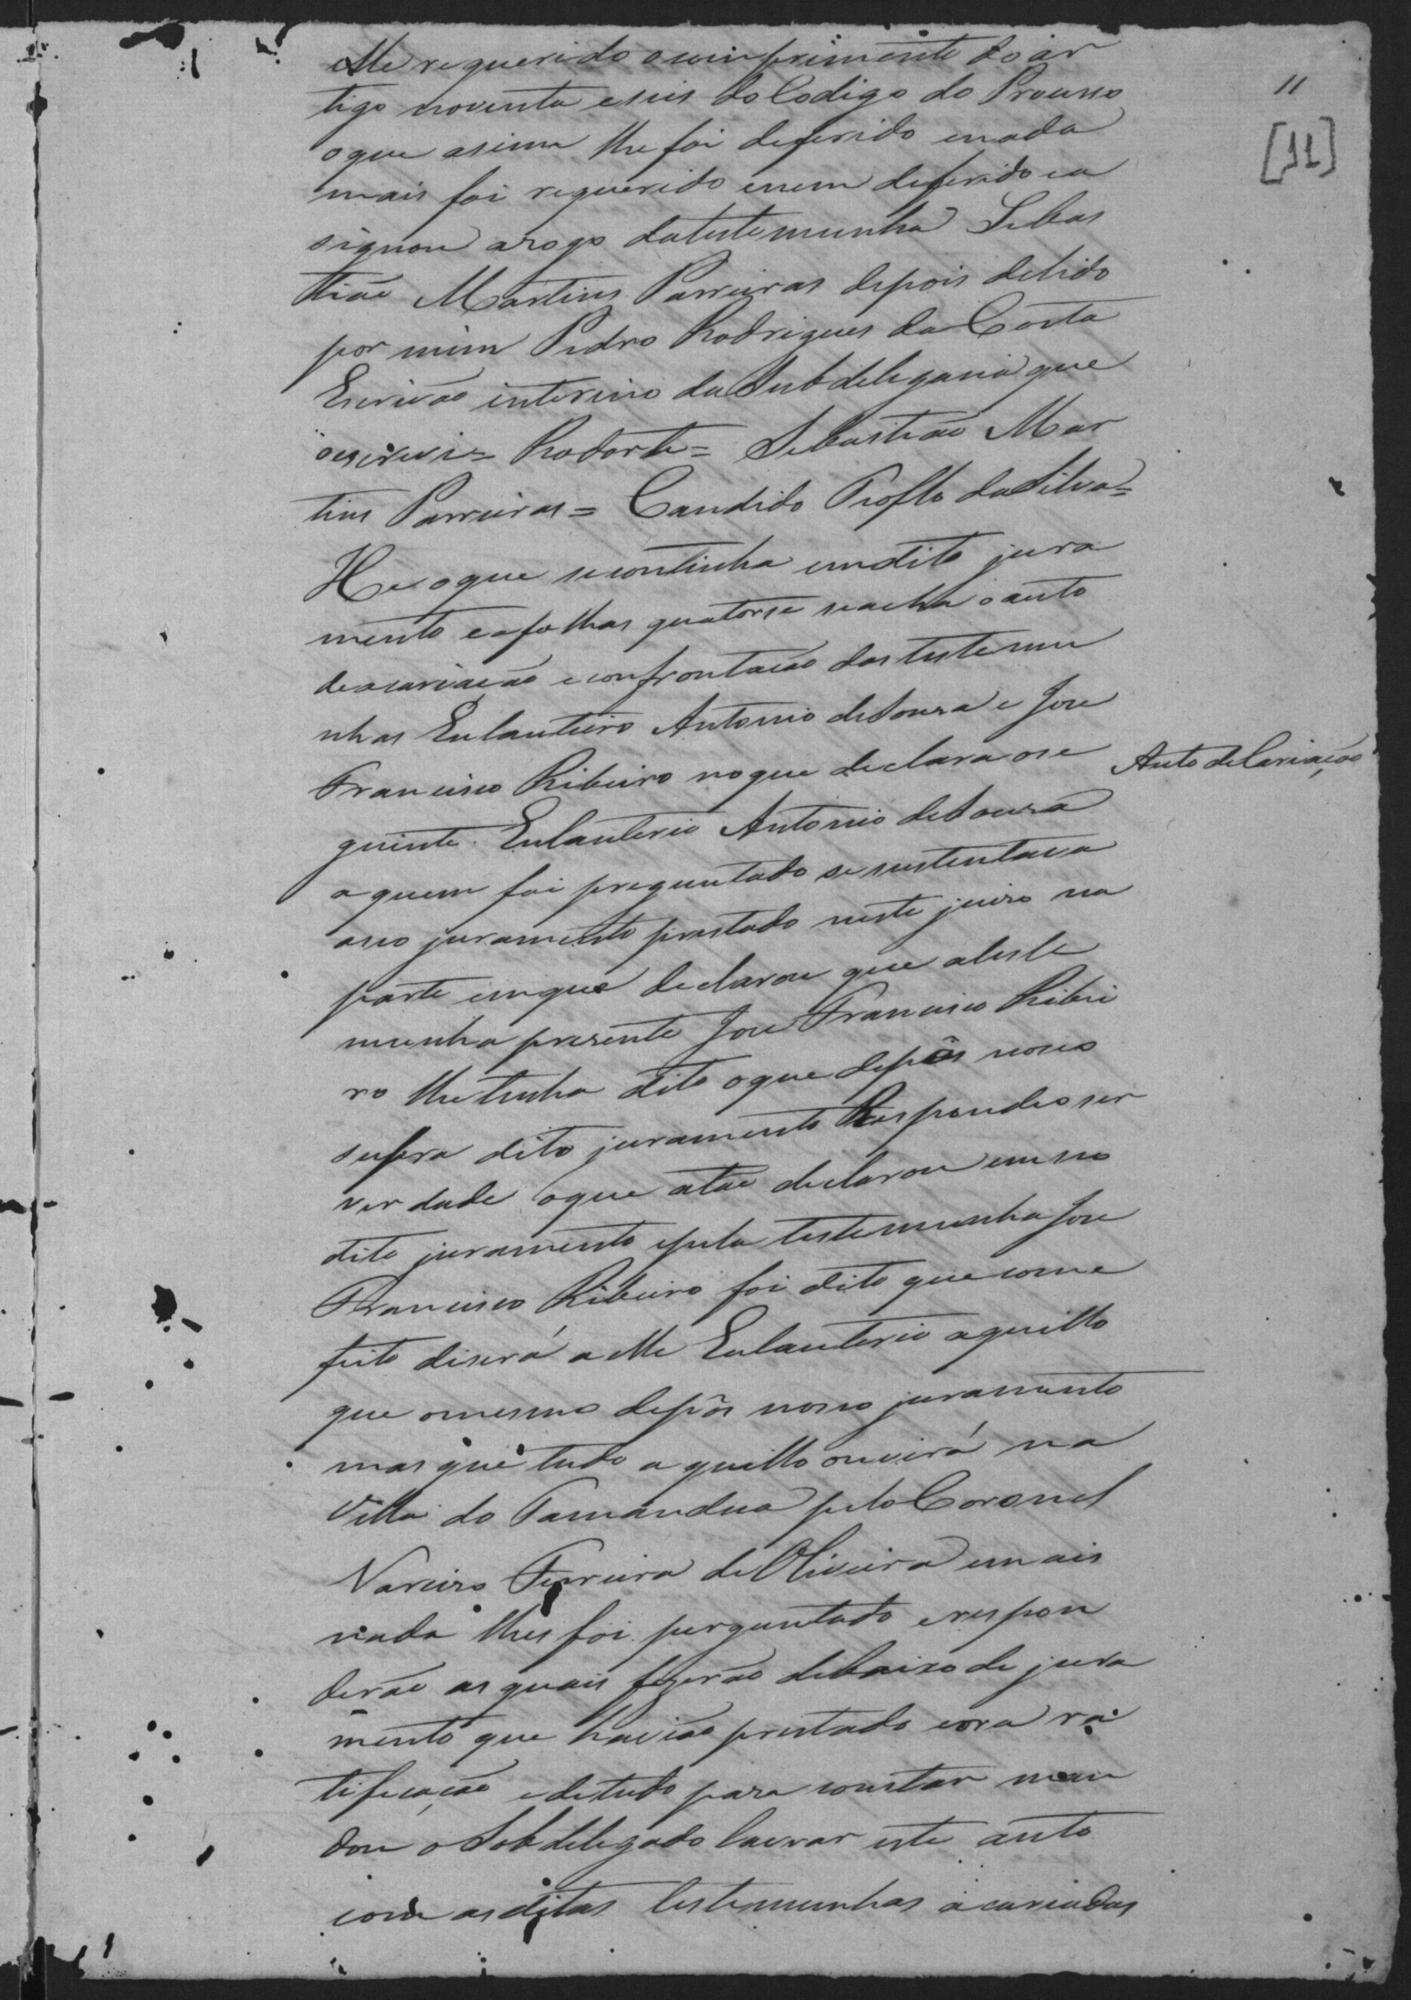 11
[11]
elle requerido o comprimento do ar
tigo noventa e seis do Codigo do Prousso
o que asima lhe foi deferido enada
mais foi requerido enem deferido ea
signou arogo datestemunha Sebas
tião Martins Parreiras depois delido
por mim Pedro Rodrigues da Costa
Escrivão interino da Subdelegacia que
oescrevi = Rodarte = Sebastião Mar
tins Parreiras = Candido da Silva =
He oque secontinha emdito jura
mento eafolhas quatorse seacha o auto
deacariacão econfrontacão das testemu
nhas Eulauterio Antonio deSousa e Jose
Francisco Ribeiro noque declara ose
Auto de Cariação
guinte. Eulauterio Antonio deSousa
aquem foi preguntado se sustentava
oseo juramento prestado neste juizo na
parte emque declarou que a teste
munha presente Jose Francisco Ribei
ro lhetinha dito oque depôs noseo
supra dito juramento Respondeo ser
verdade oque atáe declarou emseo
dito juramento epela testemunha Jose
Francisco Ribeiro foi dito que come
feito diserá a elle Eulauterio aquillo
que omesmo depôs noseo juramento
mas que tudo aquillo ouvirá na
Villa do Tamandua pelo Coronel
Narcizo Ferreira deOliveira emais
nada lhes foi perguntado erespon
derão as quais fizerão debaixo de jura
mento que havião prestado eora ra
tificação edetudo para constar man
dou o Subdelegado lavrar este auto
com asditas testemunhas acariadas